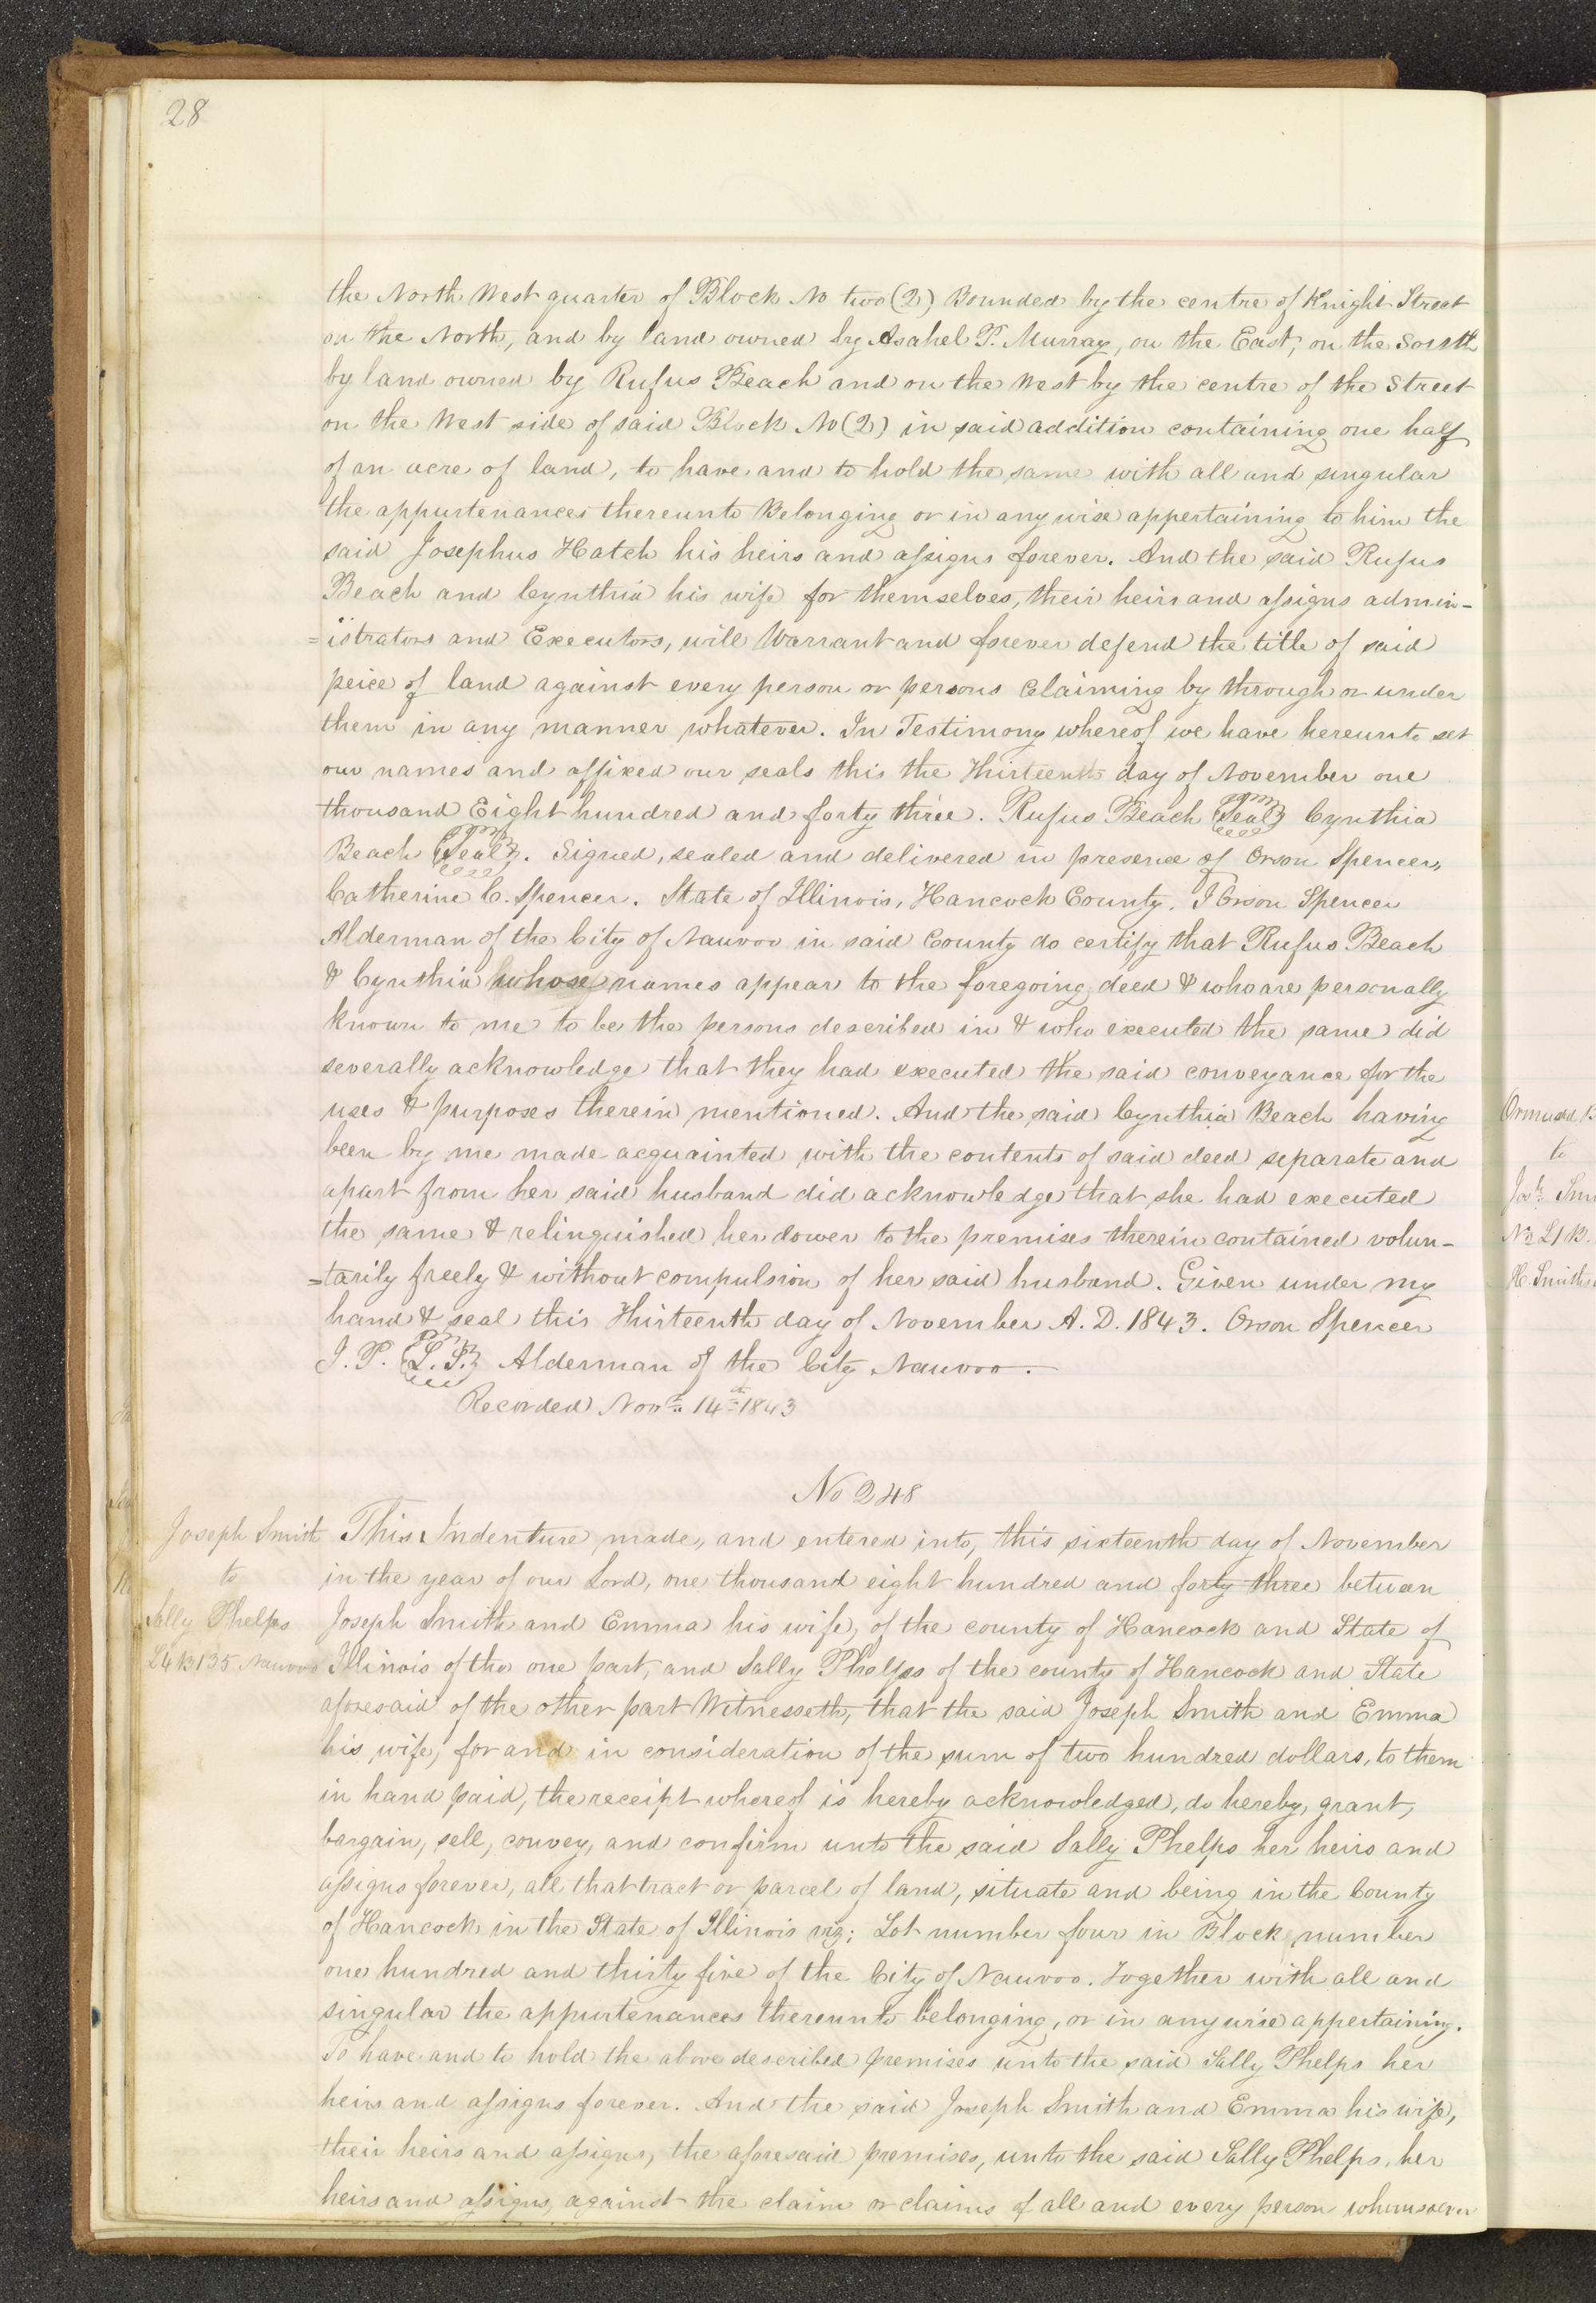 28
the North West quarter of Block No two (2) Bounded by the centre of Knight Street
on the North, and by land owned by Asahel P. Murray, on the East, on the South
by land owned by Rufus Beach and on the West by the centre of the Street
on the West side of said Block No (2) in said addition containing one half
of an acre of land, to have and to hold the same with all and singular
the appurtenances thereunto Belonging or in any wise appertaining to him the
said Josephus Hatch his heirs and assigns forever. And the said Rufus
Beach and Cynthia his wife for themselves, their heirs and assigns admin-
=istrators and Executors, will Warrant and forever defend the title of said
peice of land against every person or persons Claiming by through or under
them in any manner whatever. In Testimony whereof we have hereunto set
our names and affixed our seals this the Thirteenth day of November one
thousand Eight hundred and forty three. Rufus Beach (Seal) Cynthia
Beach (Seal). Signed, sealed and delivered in presence of Orson Spencer,
Catherine C. Spencer. State of Illinois, Hancock County. I Orson Spencer
Alderman of the City of Nauvoo in said County do certify that Rufus Beach
& Cynthia whose names appear to the foregoing deed & who are personally
known to me to be the persons described in & who executed the same did
severally acknowledge that they had executed the said conveyance for the
uses & purposes therein mentioned. And the said Cynthia Beach having
been by me made acquainted with the contents of said deed separate and
apart from her said husband did acknowledge that she had executed
the same & relinquished her dower to the premises therein contained volun-
=tarily freely & without compulsion of her said husband. Given under my
hand & seal this Thirteenth day of November A. D. 1843. Orson Spencer
J. P. (L. S.) Alderman of the City Nauvoo.
Recorded Novr. 14th 1843
No 248
Joseph Smith
to
Sally Phelps
L4 B135 Nauvoo
This Indenture made, and entered into, this sixteenth day of November
in the year of our Lord, one thousand eight hundred and forty three between
Joseph Smith and Emma his wife, of the county of Hancock and State of
Illinois of the one part, and Sally Phelps of the county of Hancock and State
aforesaid of the other part Witnesseth, that the said Joseph Smith and Emma
his wife, for and in consideration of the sum of two hundred dollars, to them
in hand paid, the receipt whereof is hereby acknowledged, do hereby, grant,
bargain, sell, convey, and confirm unto the said Sally Phelps her heirs and
assigns forever, all that tract or parcel of land, situate and being in the County
of Hancock in the State of Illinois viz; Lot number four in Block number
one hundred and thirty five of the City of Nauvoo. Together with all and
singular the appurtenances thereunto belonging, or in any wise appertaining.
To have and to hold the above described premises unto the said Sally Phelps her
heirs and assigns forever. And the said Joseph Smith and Emma his wife,
their heirs and assigns, the aforesaid premises, unto the said Sally Phelps, her
heirs and assigns, against the claim or claims of all and every person whomsoever
to